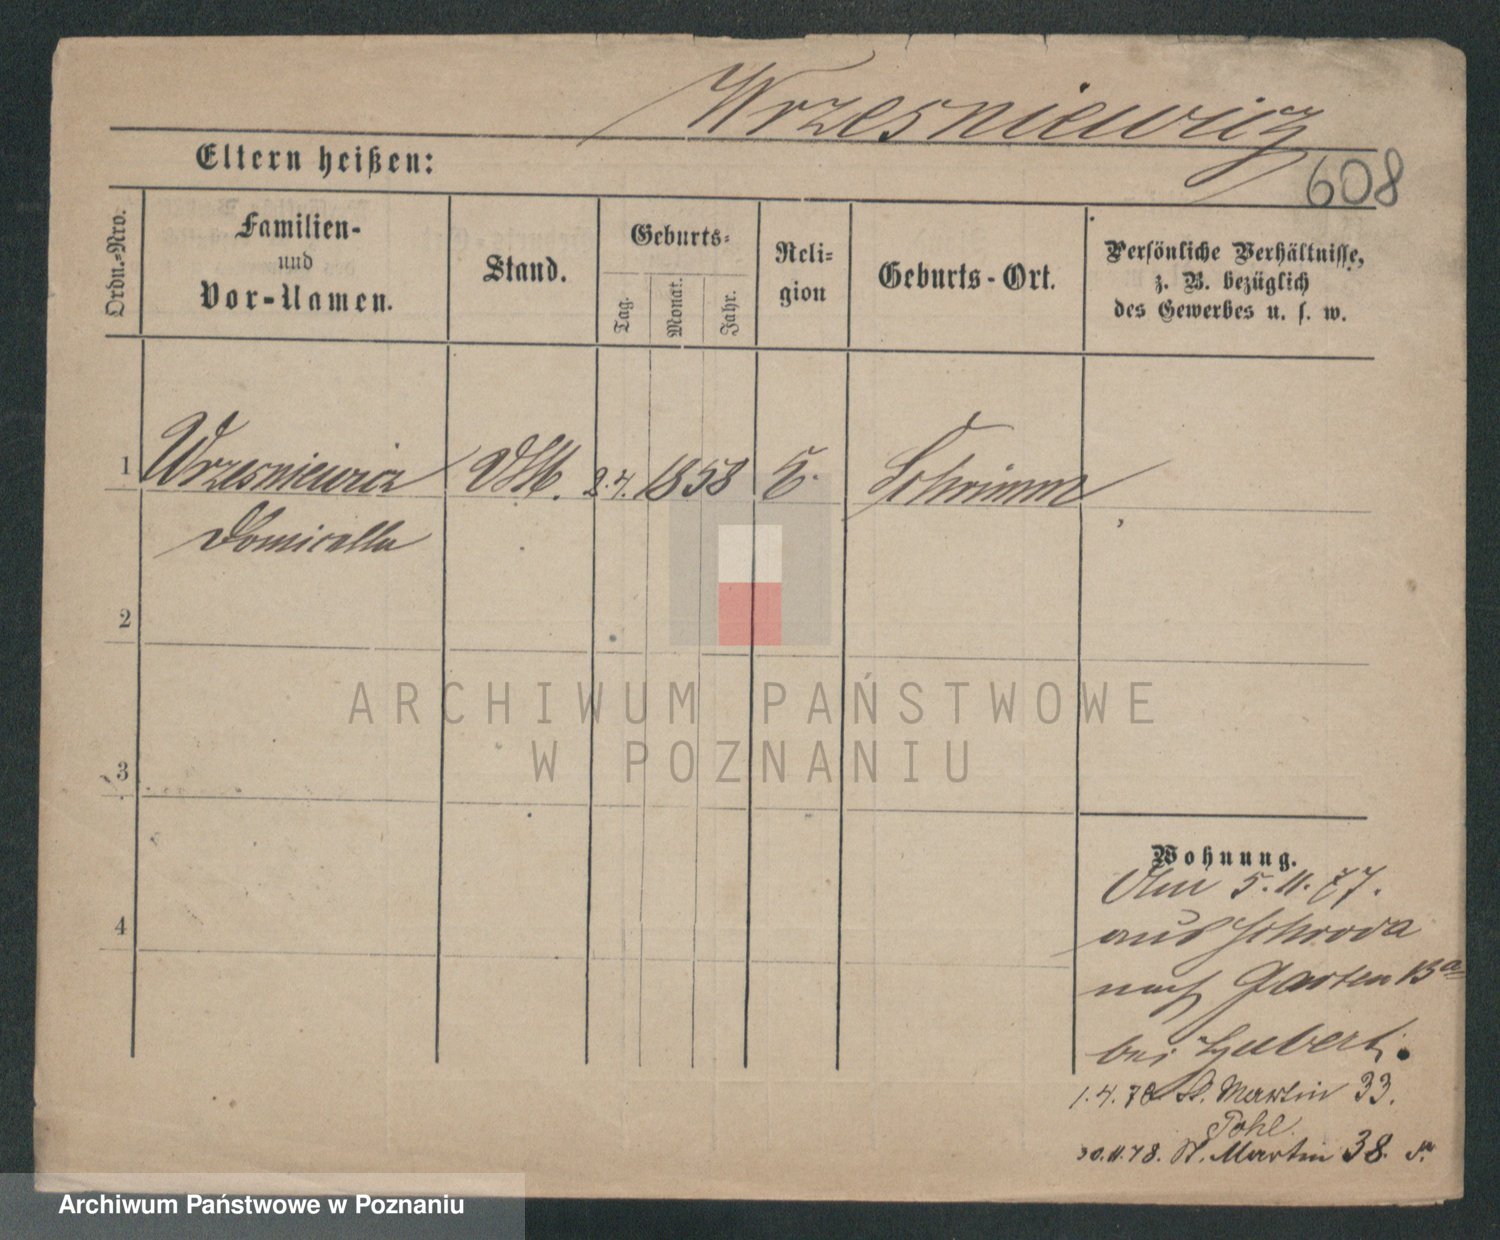 Wrzesniewicz
608
Eltern heißen:
Ordn.-Nro.
Familien-
und
Vor-Namen.
Stand.
Geburts-
Tag.
Monat.
Jahr.
Reli-
gion
Geburts-Ort.
Persönliche Verhältnisse,
z. B. bezüglich
des Gewerbes u. s. w.
1
Wrzesniewicz
DM. 2. 4. 1858
Schrimm
Domicella
2
ARCHIWUM PAŃSTWOWE
W POZNANIU
3
4
Wohnung.
Am 5. 11. 77.
aus Schroda
nach Garten 13a
bei Hubert.
1. 4. 78 St. Martin 33.
Pohl.
30. 11. 78. St. Martin 38.
Archiwum Państwowe w Poznaniu